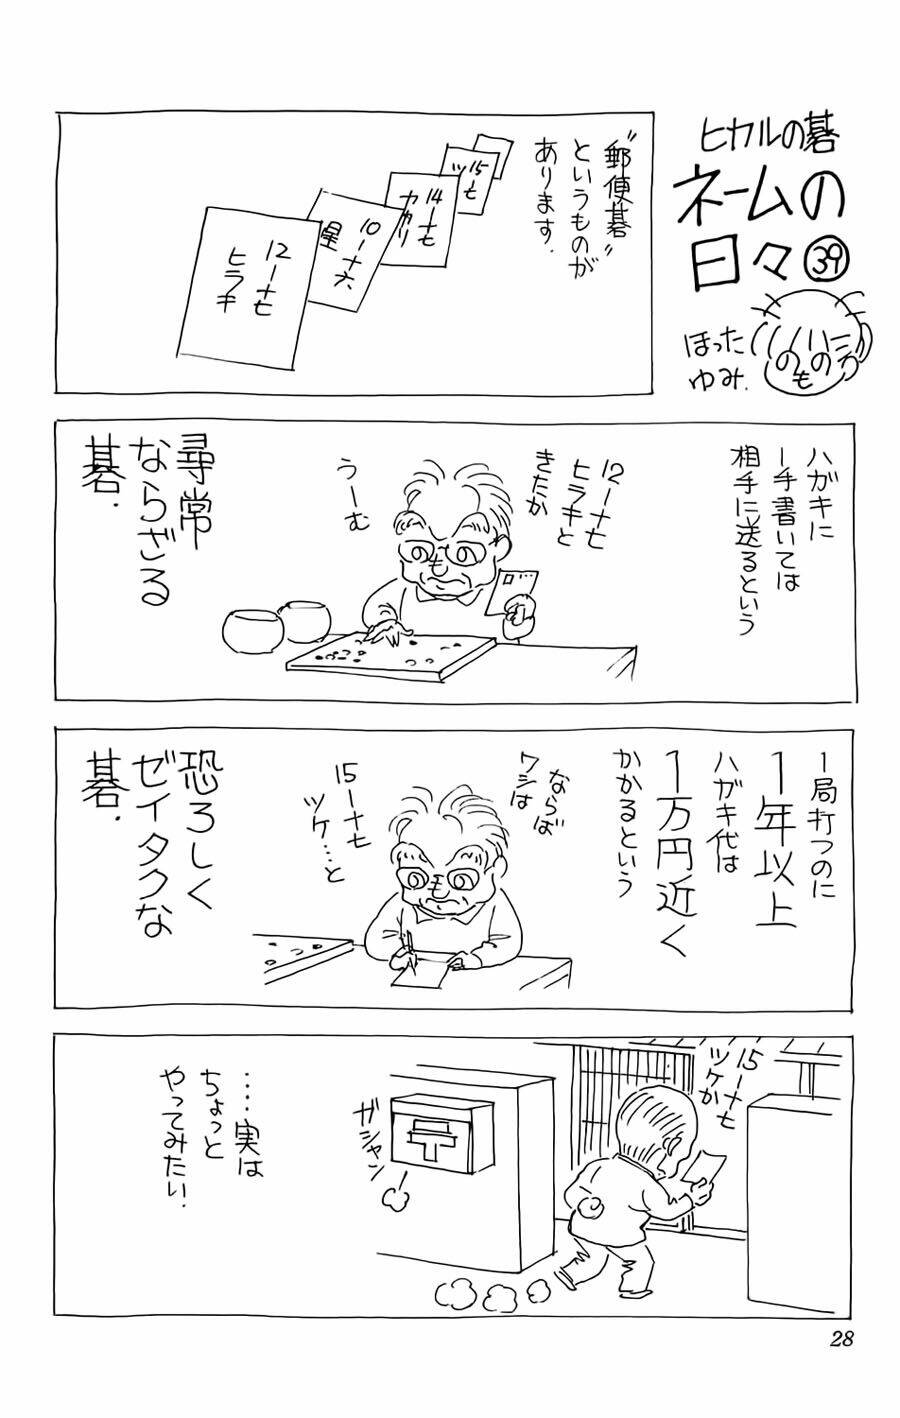 ヒカルの碁
ネームの
日々㊴
ほった
ゆみ.
へのへのもへじ
“郵便碁”
というものが
あります.
15ー十七
ツ
14ー十七
カカリ
10ー十六
星
12ー十七
ヒラキ
ハガキに
一手書いては
相手に送るという
12ー十七
ヒラキと
きたか
うーむ
尋常
ならざる
碁.
1局打つのに
1年以上
ハガキ代は
1万円近く
かかるという
ならば
ワシは
15ー十七
ツケ…と
恐ろしく
ゼイタクな
碁.
15ー十七
ツケか
ガシャン
……実は
ちょっと
やってみたい.
28